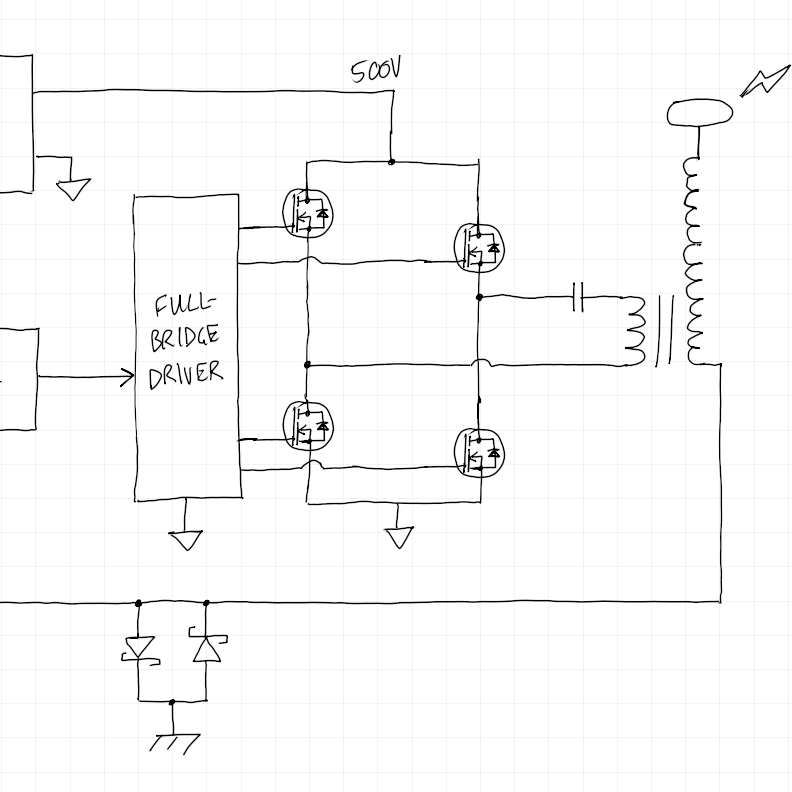 500V
FULL-
BRIDGE
DRIVER